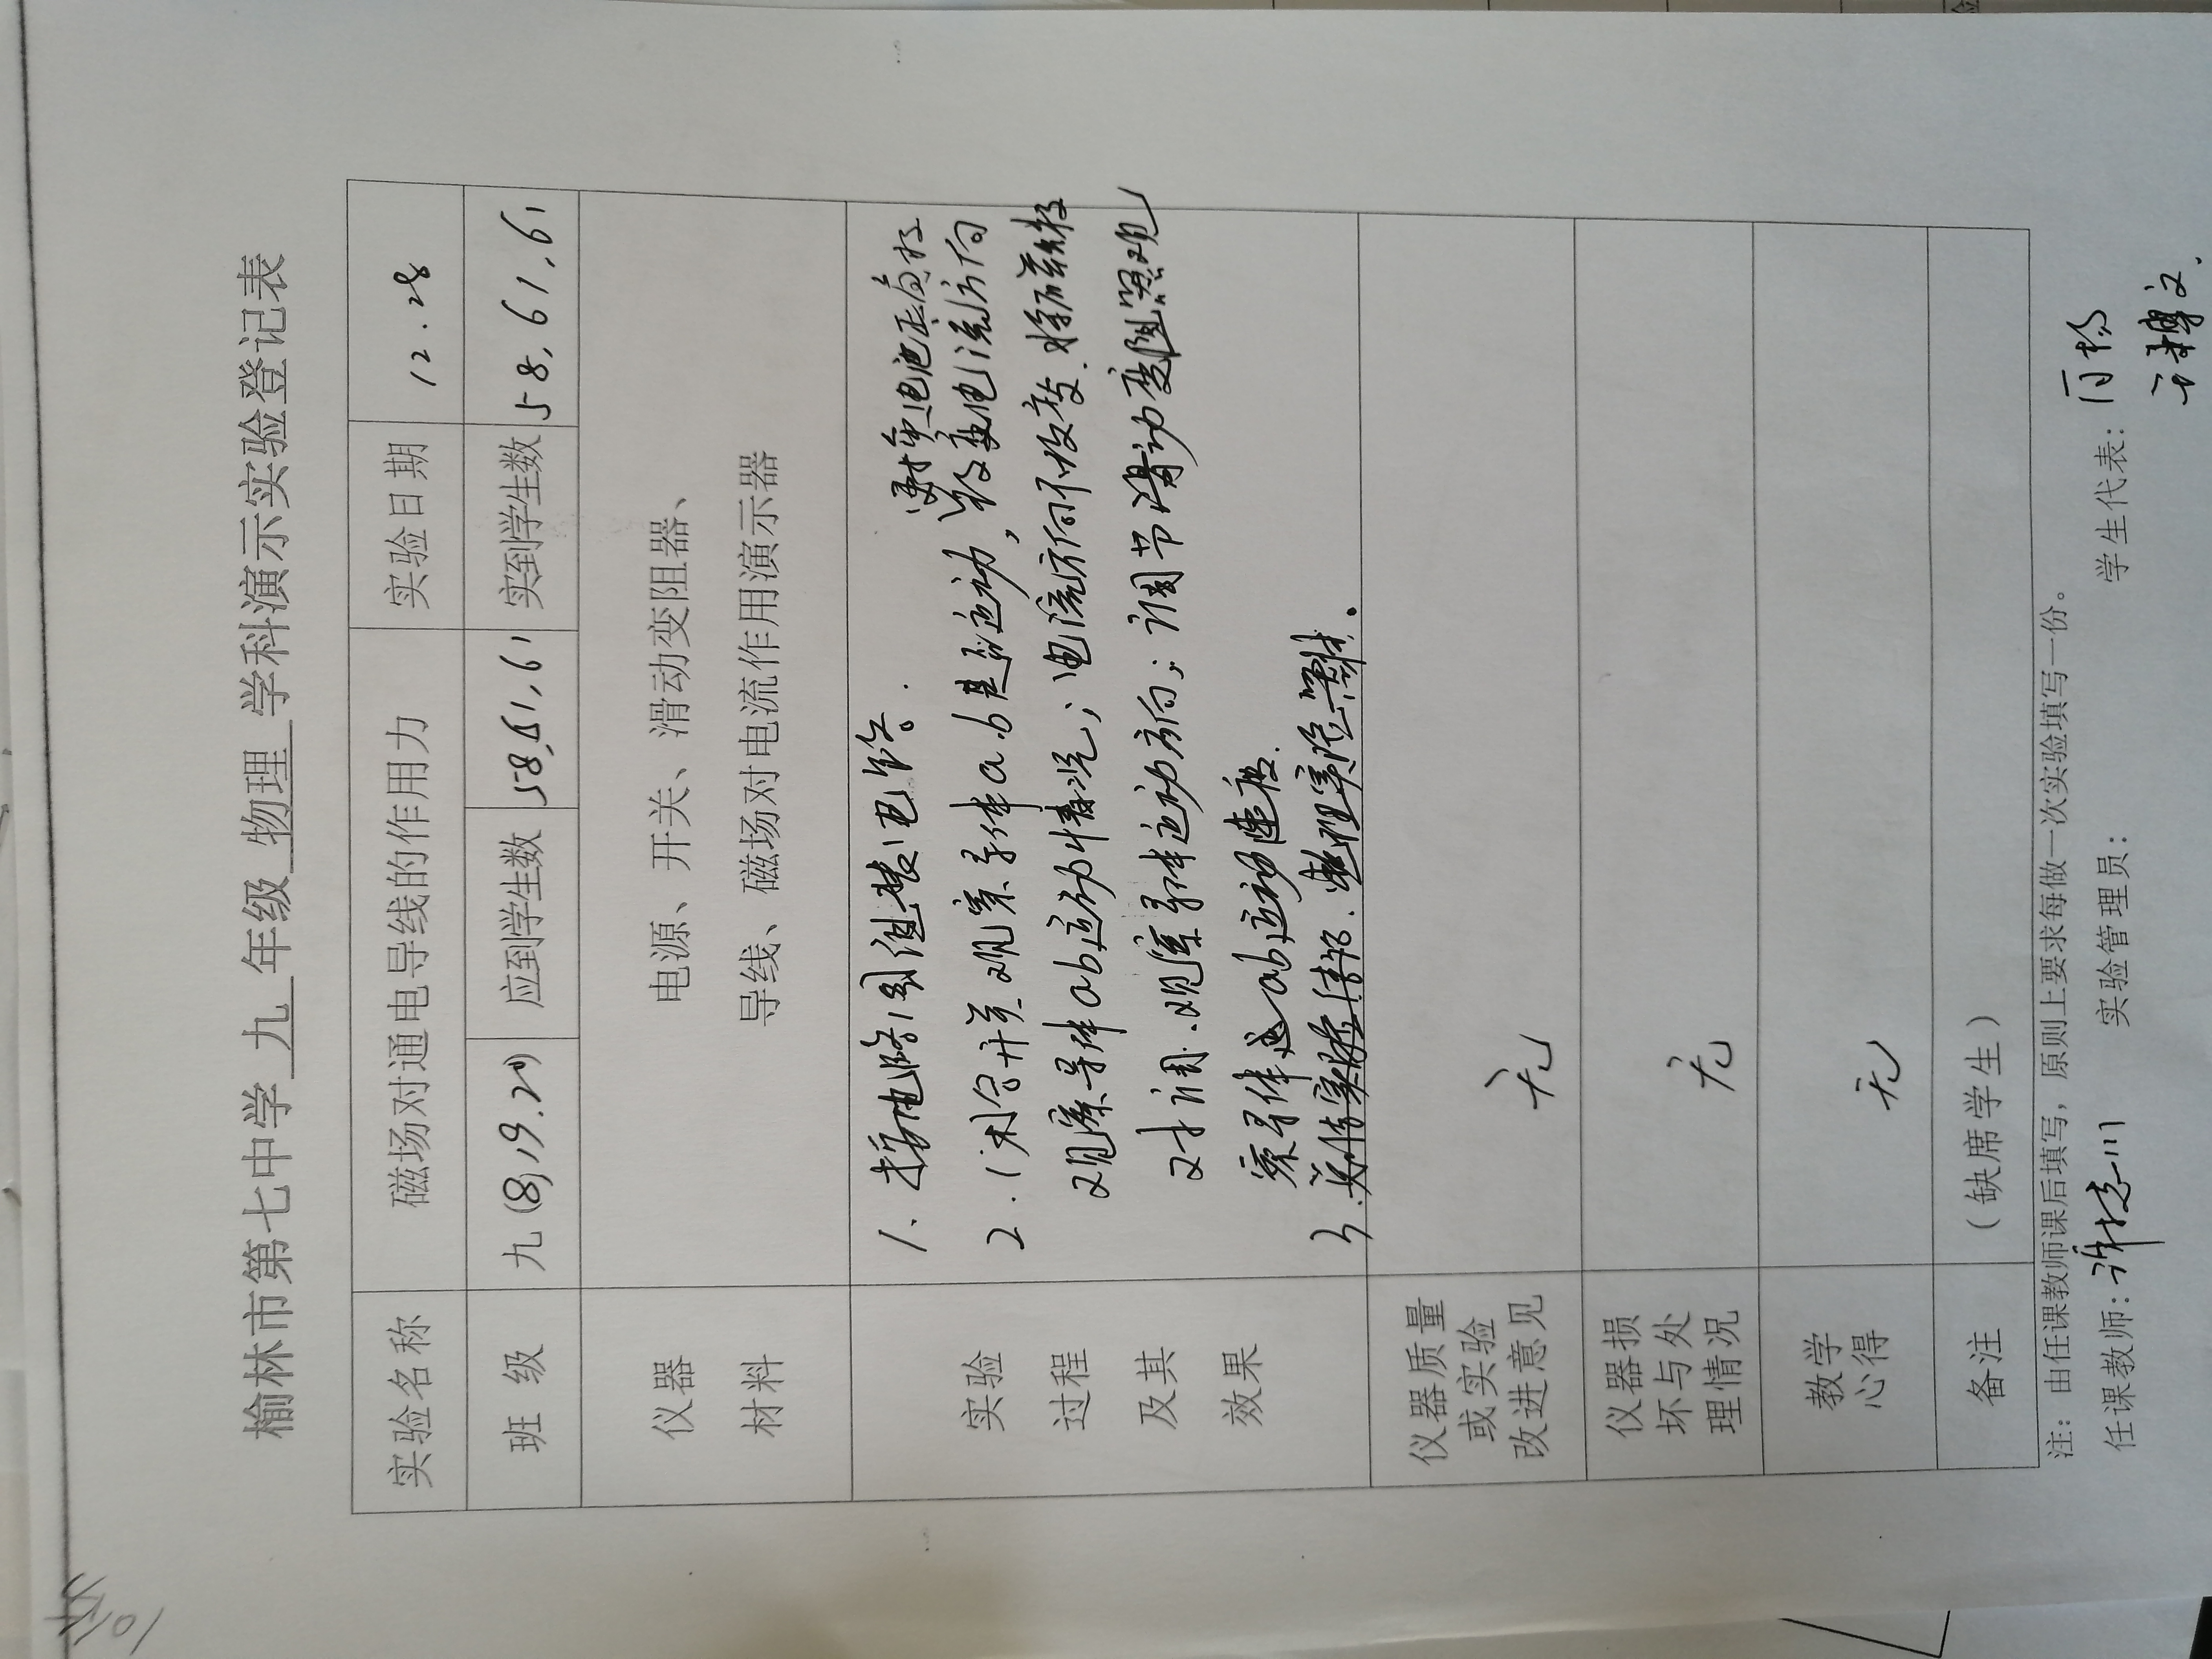 榆林市第七中学 九 年级 物理 学科演示实验登记表
实验名称 磁场对通电导线的作用力 实验日期 12.28
班 级 九(8,19.20) 应到学生数 58,61,61 实到学生数 58,61,61
仪器
材料
电源、开关、滑动变阻器、
导线、磁场对电流作用演示器
实验
过程
及其
效果
1、按电路图组装电路.
对审电池正负极
2.闭合开关观察导体a.b是否运动,改变电流方向
观察导体ab运动情况;电流方向不改变.将磁极
对调.观察导体运动方向;调节滑动变阻器观
察导体ab运动速度.
3.关情实验结邹.整理实验器材.
仪器质量
或实验
改进意见
无
仪器损
坏与处
理情况
无
教学
心得
无
备注 (缺席学生)
注:由任课教师课后填写,原则上要求每做一次实验填写一份。
任课教师:许志川 实验管理员: 学生代表:
博文.